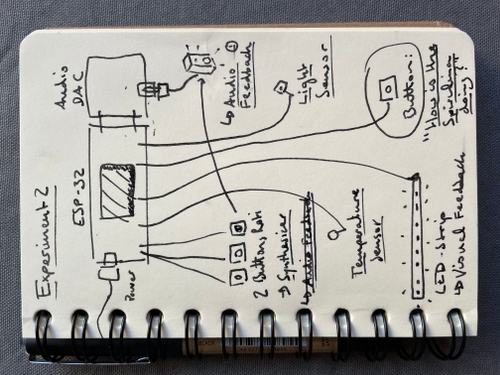 Experiment 2
ESP-32
Audio
DAC
Power
↳ Audio
Feedback
Light
Sensor
Button:
"How is the
Spirulina
doing"
2 Buttons
→ Synthesizer
↳ Audio Feedback
Temperature
Sensor
LED-Strip
↳ Visual Feedback